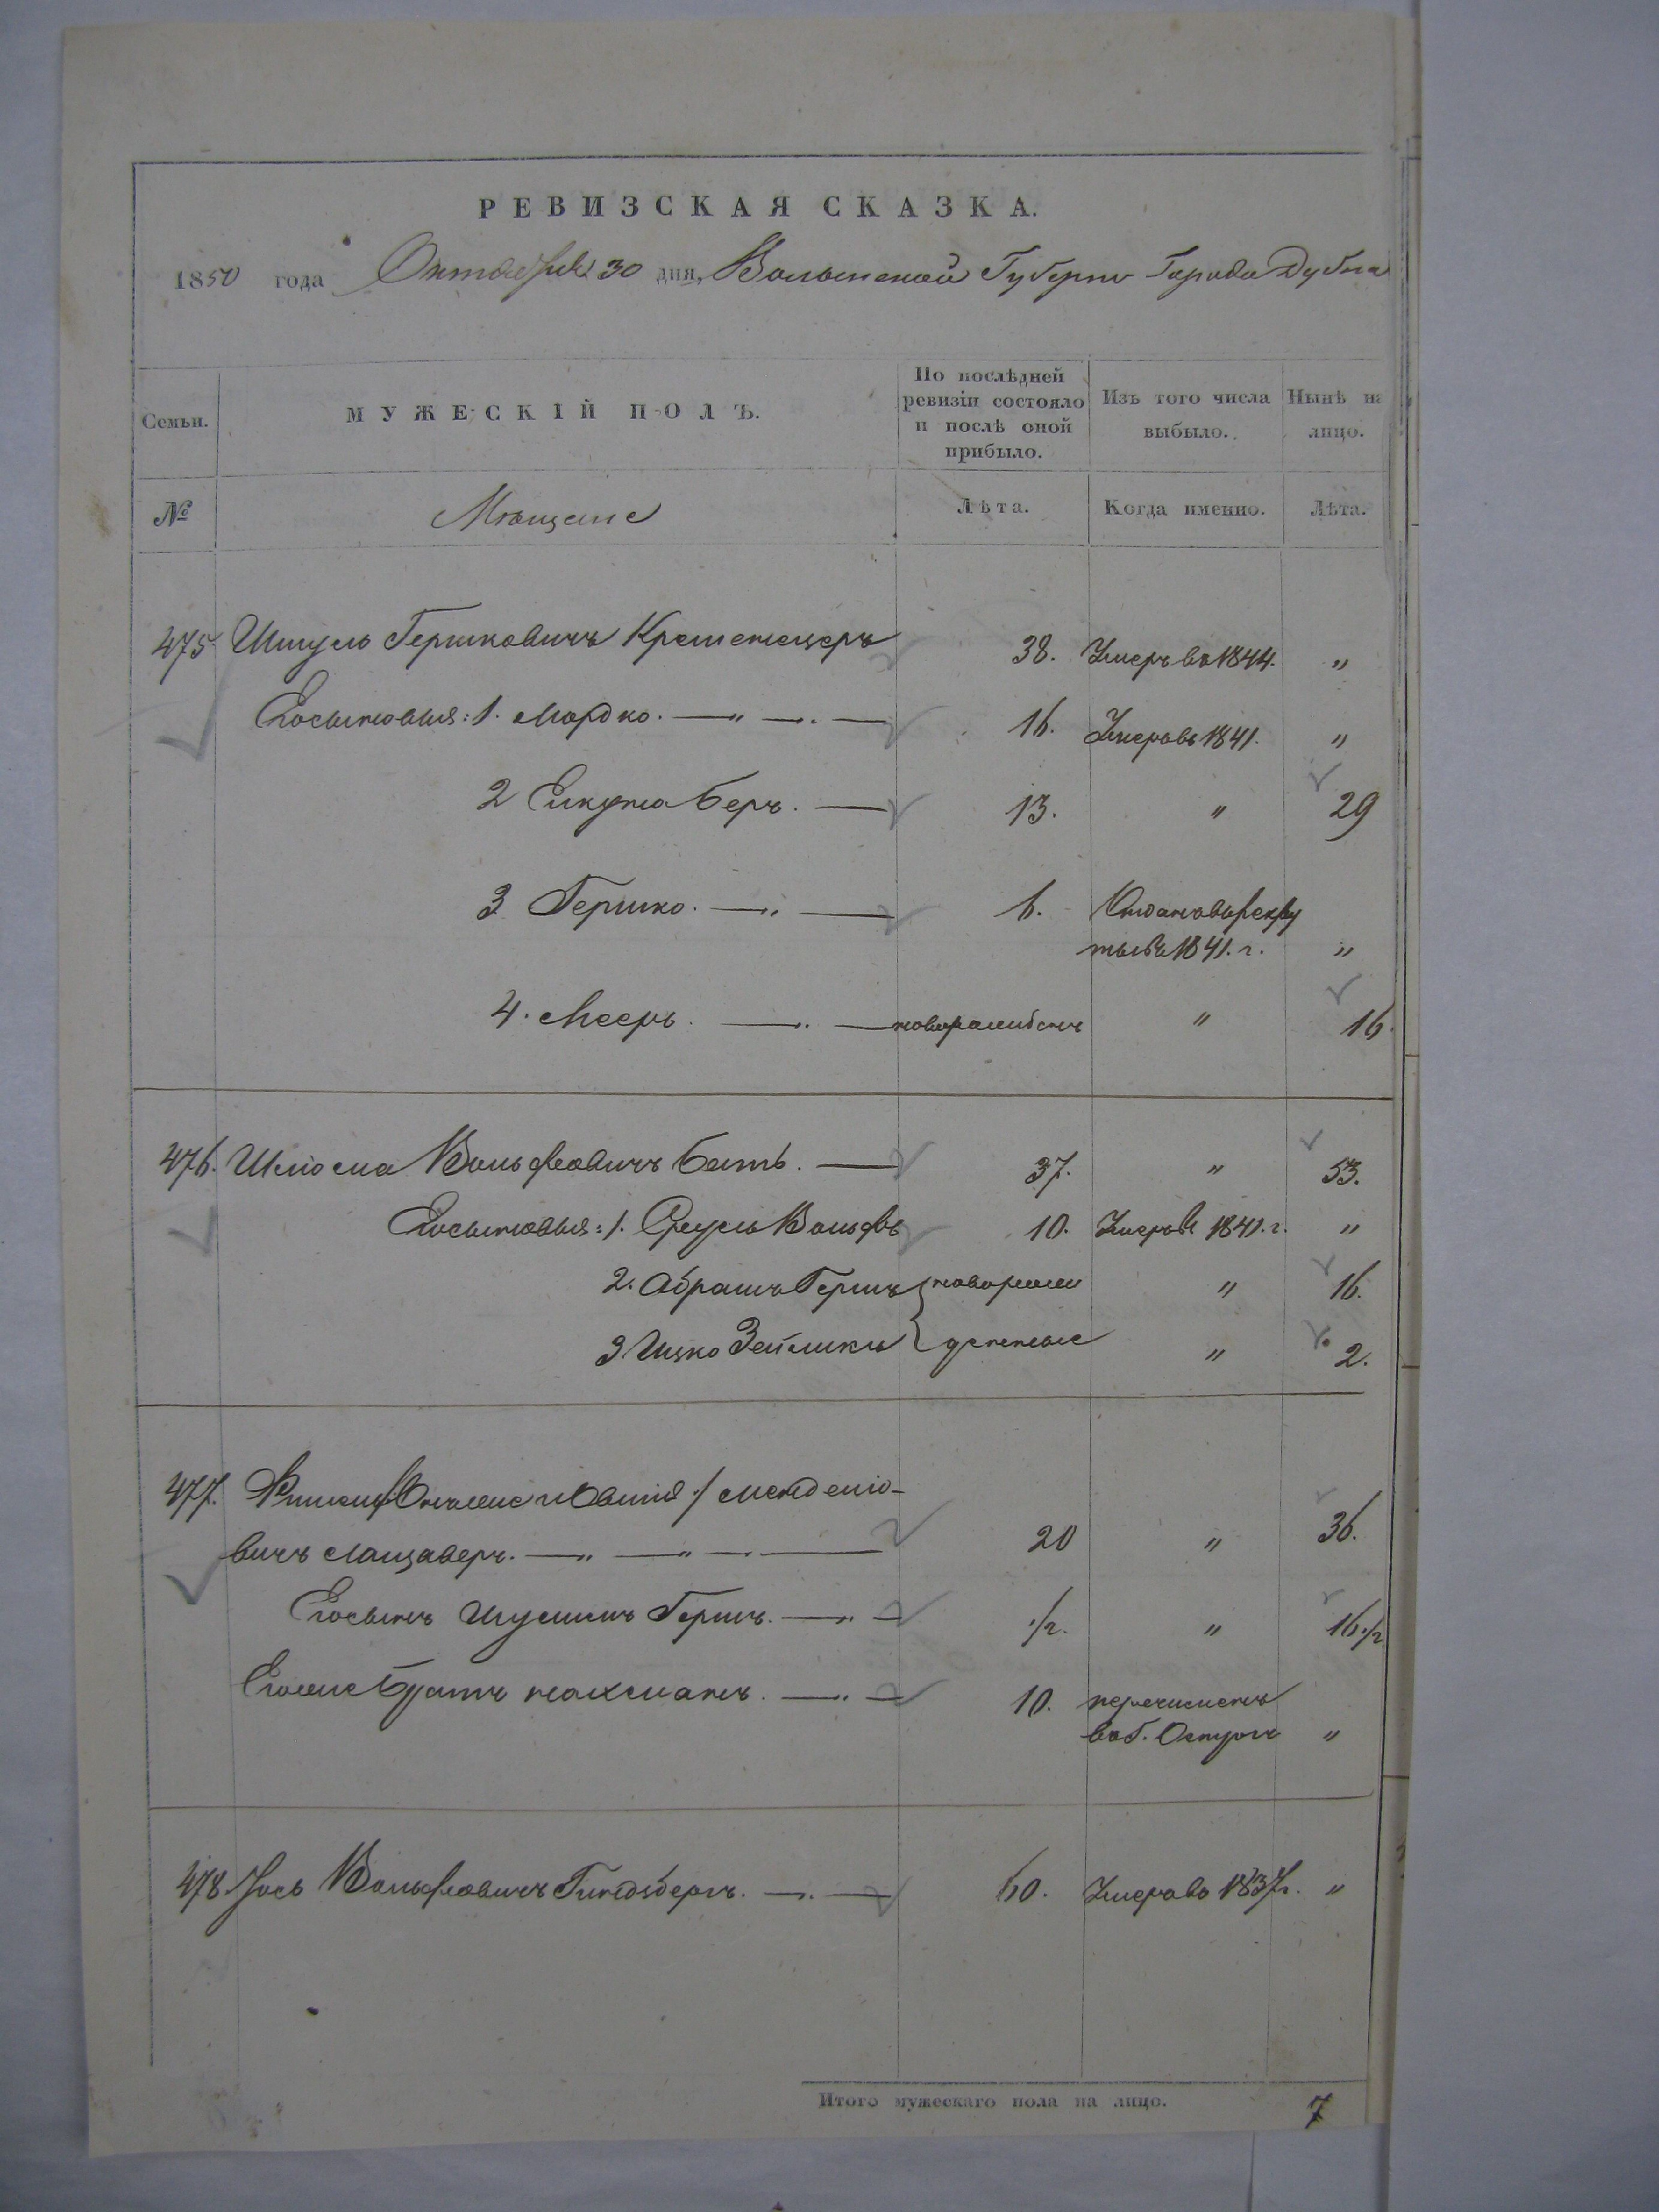 РЕВИЗСКАЯ СКАЗКА.
1850 года Октября 30 дня, Волынской Губерни Города Дубна
Семьи. МУЖЕСКІЙ ПОЛЪ. По послѣдней ревизіи состояло и послѣ оной прибыло. Изъ того числа выбыло. Нынѣ на лицо.
№ Мѣщане Лѣта. Когда именно. Лѣта.
475 Шмуль Гершковичъ Кременецеръ 38. Умеръ въ 1844. "
Его сыновья: 1. Мордко. — " — . — 16. Умеръ въ 1841. "
2 Екута Беръ. — 13. " 29
3 Гершко. — " — 6. Отданъ въ рекру
ты въ 1841. г. "
4. Мееръ. — . — новорожденъ " 16.
476. Шлиома Вольфовичъ Батъ. — 37. " 53.
Его сыновья: 1. Сруль Вольфъ 10. Умеръ въ 1841. г. "
2. Абрамъ Гершъ } новорож " 16.
3 Ицко Зейликъ } денные " 2.
477. Менделіо-
вичъ Лащаверъ. — " — " — . — 20 " 36.
Его сынъ Гершъ. — " — ½. " 16 ½
Его же братъ Нахманъ. — " — 10. перечисленъ
въ г. Острогъ "
478. Іось Вольфовичъ Гиндзбергъ. — . — 60. Умеръ въ 1837 г. "
Итого мужескаго пола на лицо. 7